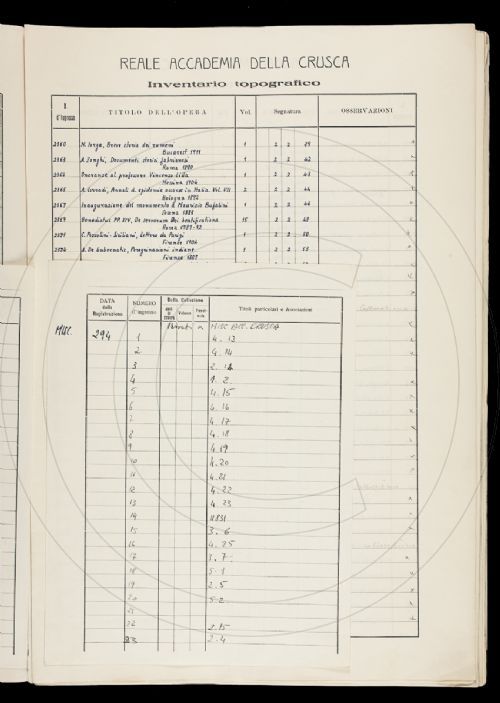 REALE ACCADEMIA DELLA CRUSCA
Inventario topografico
N. d'Ingresso TITOLO DELL'OPERA Vol. Segnatura OSSERVAZIONI
2160 N. Iorga, Breve storia dei rumeni 1 2 2
Bucarest 1911
2163 A. Zonghi, Documenti storici fabrianesi 1 2 2 42
Roma 1880
Onoranze al professore Vincenzo Lilla 1 2 2 43
Messina 1904
2165 A. Corradi, Annali di epidemie occorse in Italia. Vol. VII 2 2 44
Bologna 1892
2167 Inaugurazione del monumento a Maurizio Bufalini 1 2 2
Cesena 1883
2169 Benedictus PP. XIV, De servorum Dei beatificatione 15 2 2
Roma
C. Pezzolini-Siciliani, Lettere da Parigi 1 2 2 50
Firenze
A. De Gubernatis, Peregrinazioni indiane 1 2 2 55
Firenze 1887
DATA della Registrazione NUMERO d'ingresso Della Collezione Volume Titoli particolari e Associazioni
Misc. 294 a MISC. ACC. CRUSCA
1 4. 13
2 4. 14
3 2. 12
4 1. 2
5 4. 15
6 4. 16
7 4. 17
8 4. 18
9 4.19
10 4. 20
11 4. 21
12 4. 22
13 4. 23
14
15 3. 6
16 4. 25
17 3. 7
18 5. 1
19 2. 5
20 5. 2
21
22 2. 15
23 2. 4